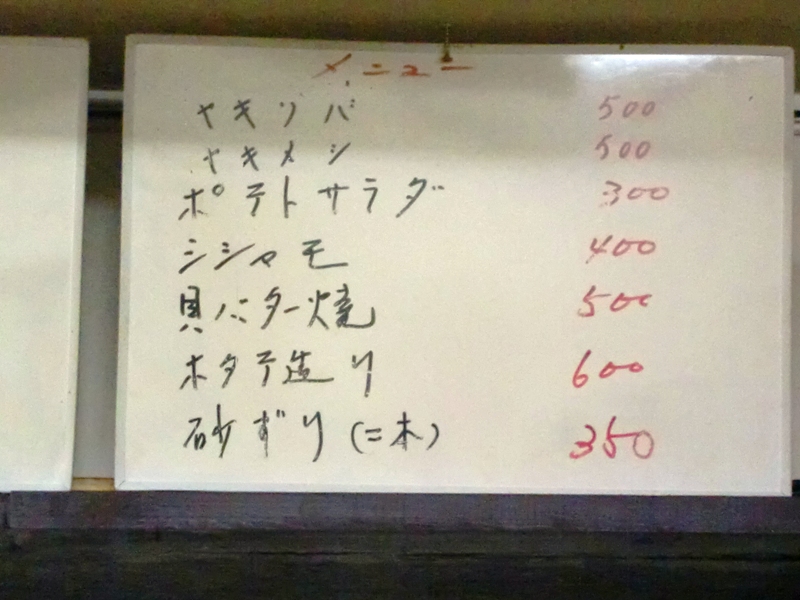 メニュー
ヤキソバ 500
ヤキメシ 500
ポテトサラダ 300
シシャモ 400
貝バター焼 500
ホタテ造り 600
砂ずり(二本) 350